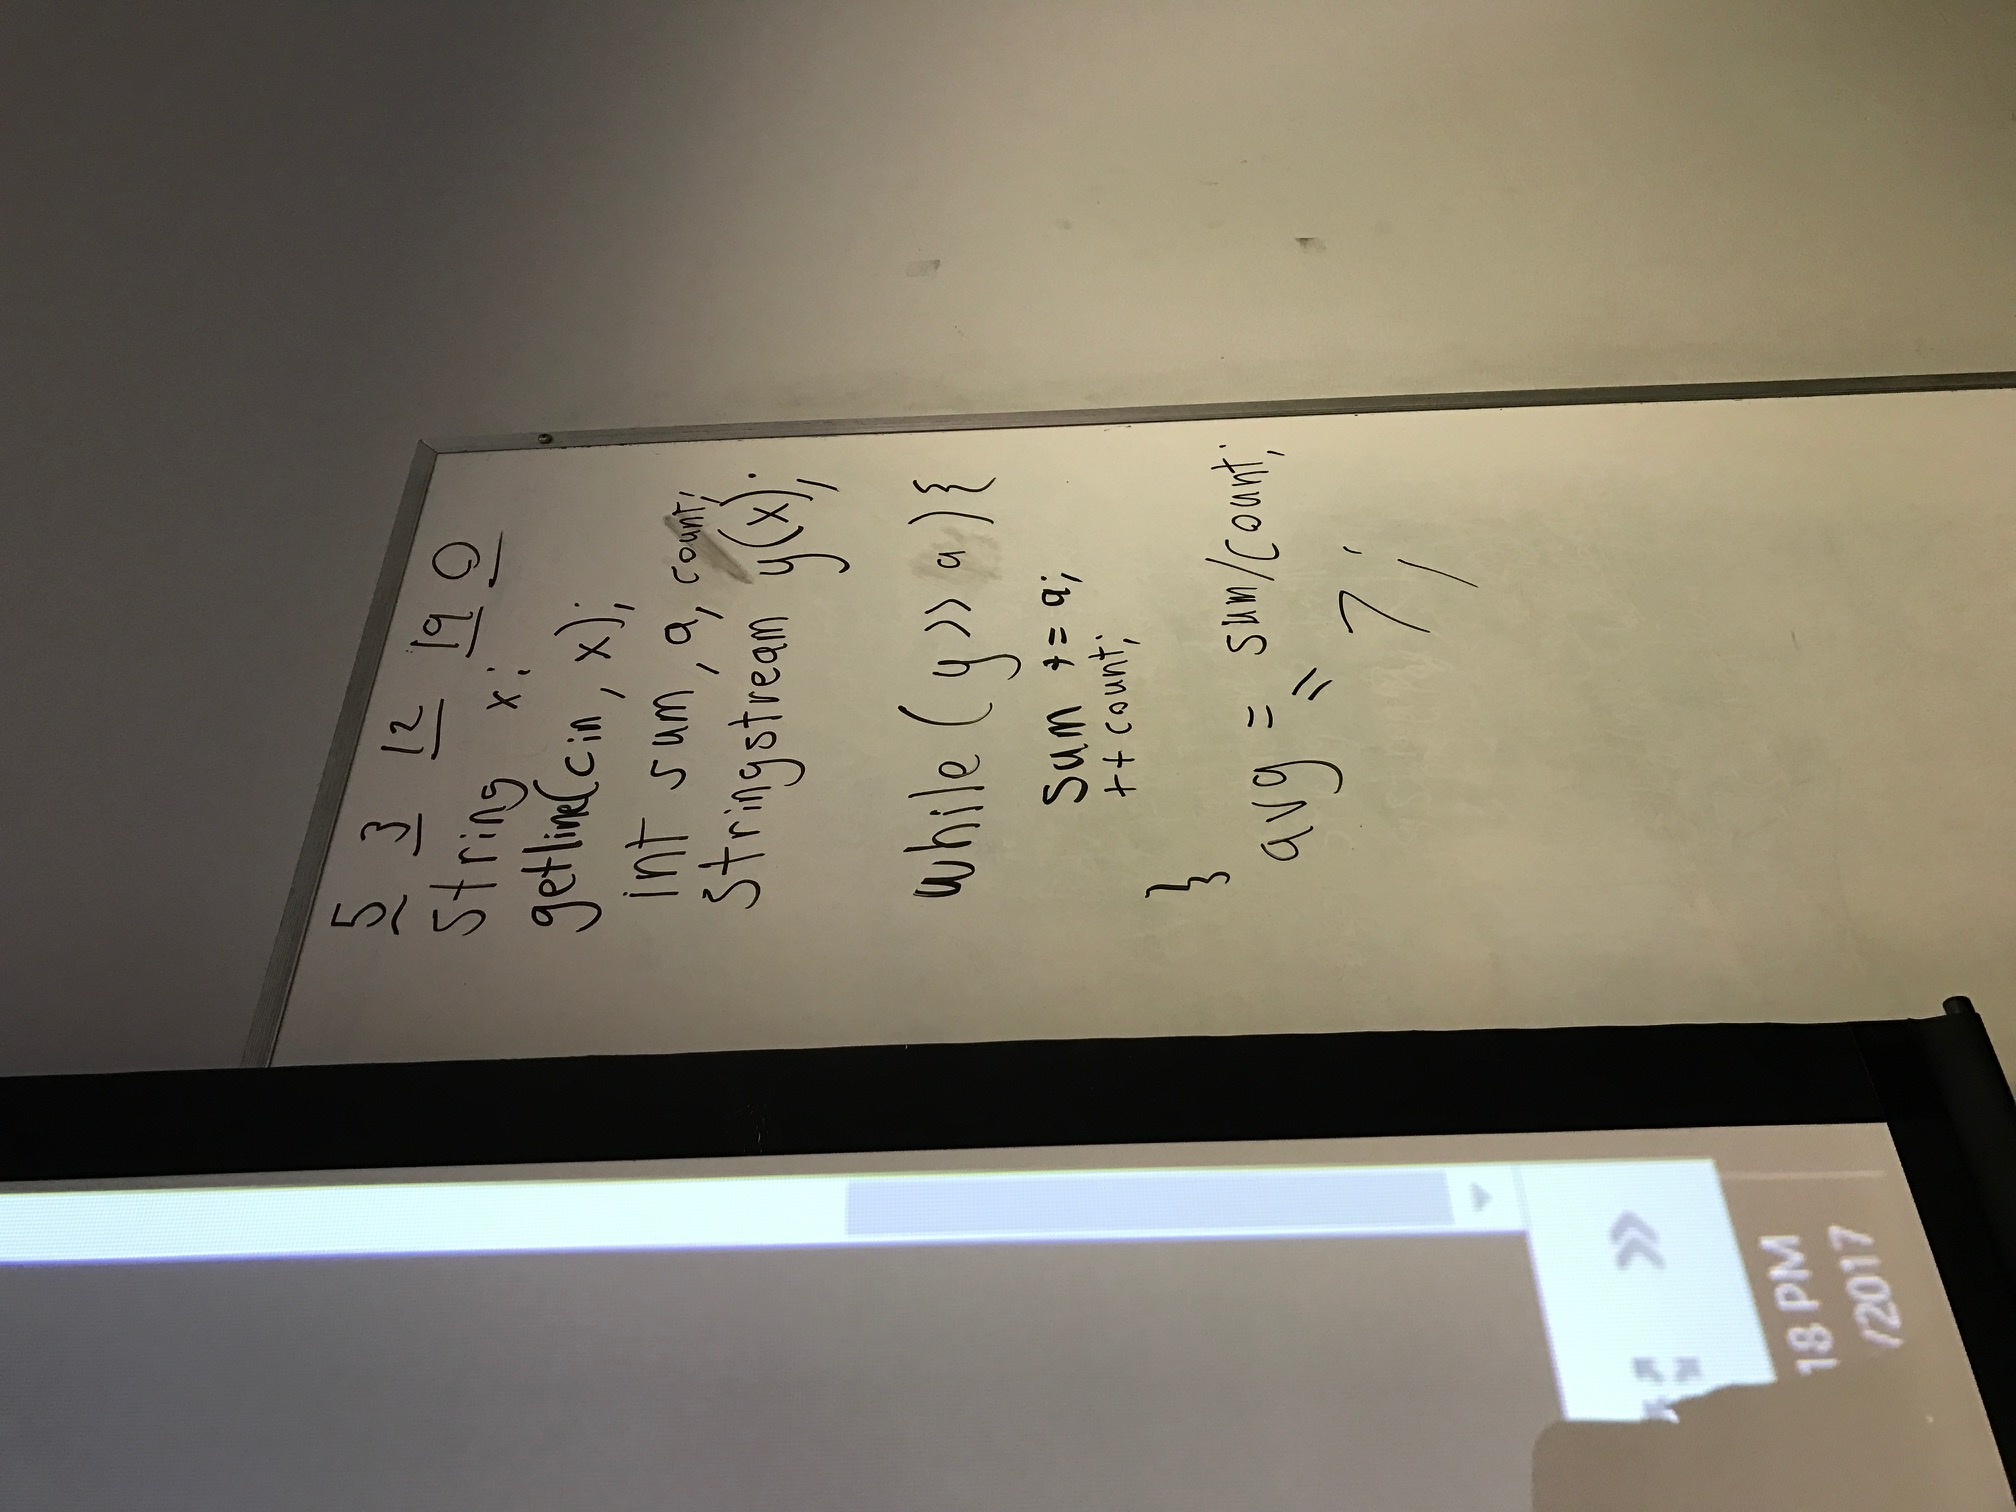 5 3 12 19 0
string x;
getline(cin, x);
int sum, a, count;
stringstream y(x);
while (y >> a) {
sum += a;
++ count;
}
avg = sum/count;
= 7;
18 PM
/2017